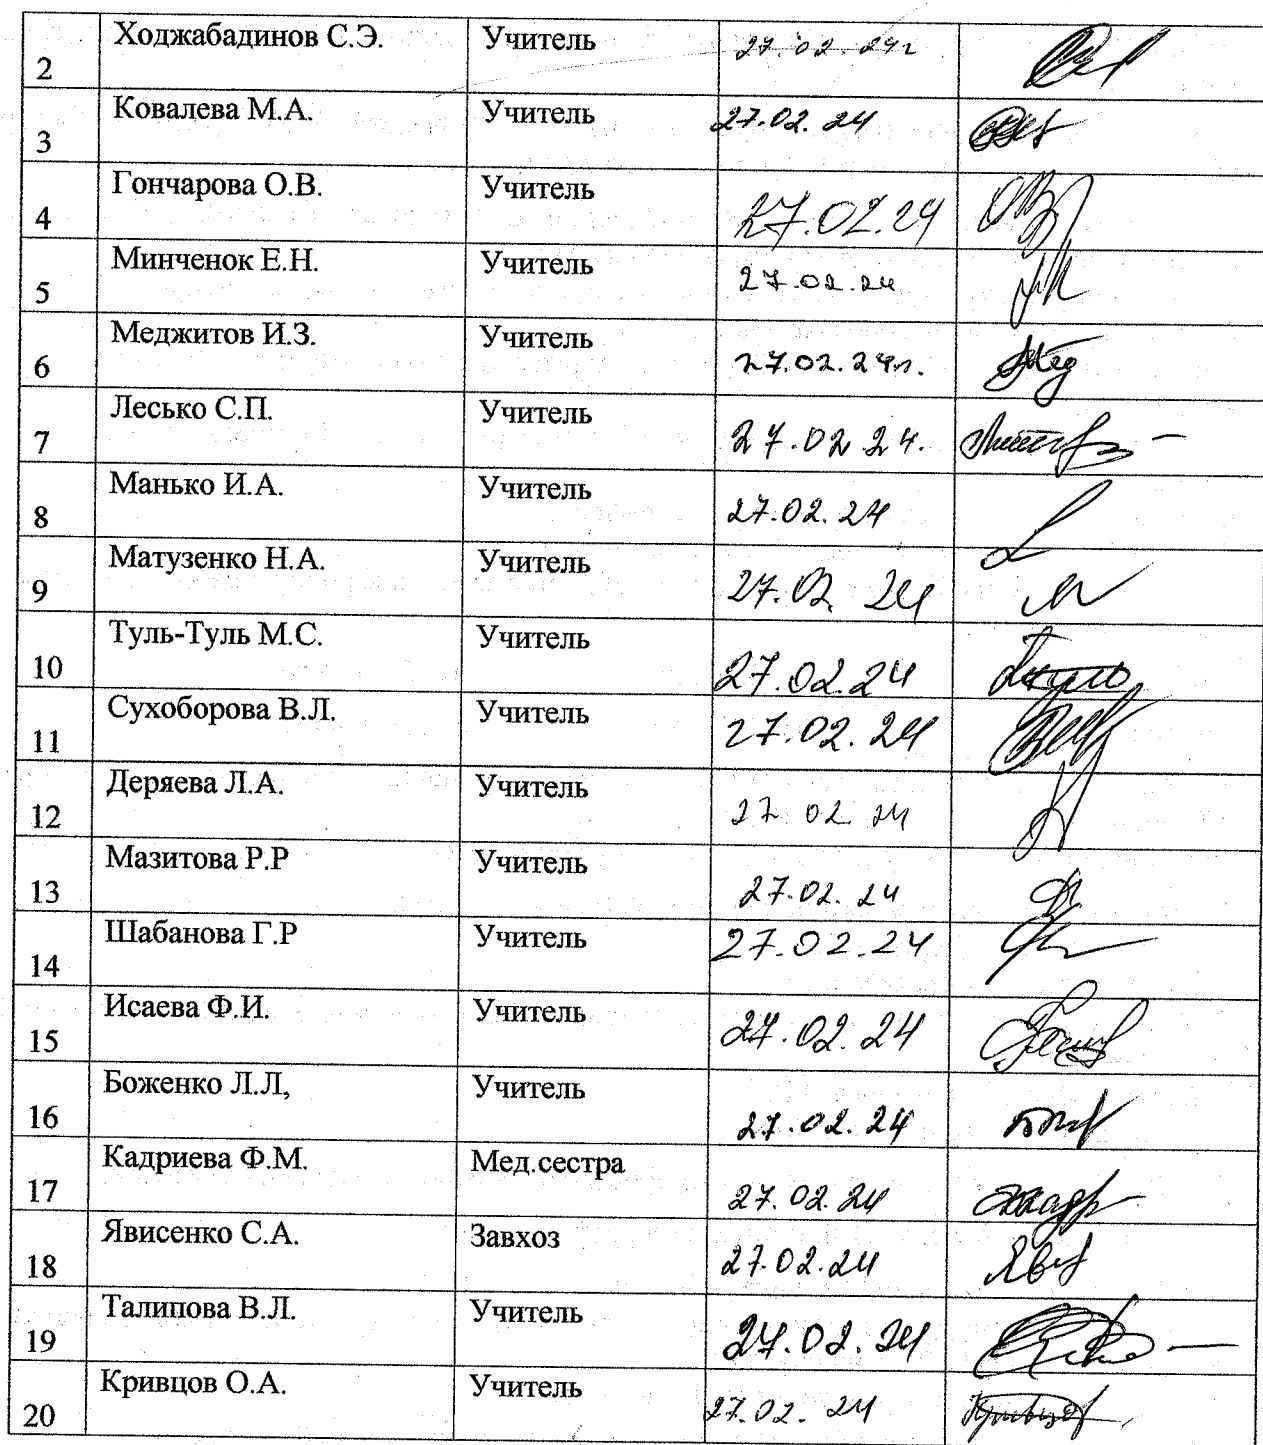 2 Ходжабадинов С.Э. Учитель 27.02.24г
3 Ковалева М.А. Учитель 27.02.24
4 Гончарова О.В. Учитель 27.02.24
5 Минченок Е.Н. Учитель 27.02.24
6 Меджитов И.З. Учитель 27.02.24г.
7 Лесько С.П. Учитель 27.02 24.
8 Манько И.А. Учитель 27.02.24
9 Матузенко Н.А. Учитель 27.02 24
10 Туль-Туль М.С. Учитель 27.02.24
11 Сухоборова В.Л. Учитель 27.02.24
12 Деряева Л.А. Учитель 27 02 24
13 Мазитова Р.Р Учитель 27.02.24
14 Шабанова Г.Р Учитель 27.02.24
15 Исаева Ф.И. Учитель 27.02.24
16 Боженко Л.Л, Учитель 27.02.24
17 Кадриева Ф.М. Мед.сестра 27.02.24
18 Явисенко С.А. Завхоз 27.02.24
19 Талипова В.Л. Учитель 27.02.24
20 Кривцов О.А. Учитель 27.02.24